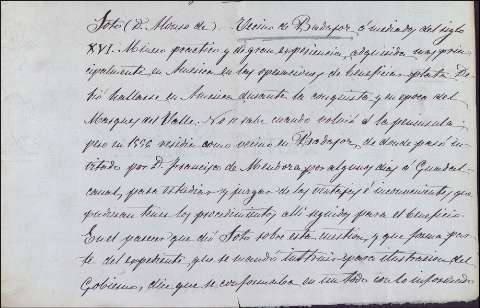 Soto (D. Alonso de). Vecino de Badajoz á mediados del siglo
XVI. Minero practico y de gran esperiencia, adquirida mas prin-
cipalmente en America en las operaciones de beneficiar plata. De-
bió hallarse en America durante la conquista y en epoca del
Marques del Valle. No se sabe cuando volvió á la peninsula;
pero en 1556 residia como vecino en Badajoz, de donde pasó in-
vitado por D. Francisco de Mendoza por algunos dias á Guadal-
canal, para estudiar y juzgar de las ventajas é inconvenientes que
pudieran tener los procedimientos alli seguidos para el beneficio.
En el parecer que dió Soto sobre esta cuestion, y que forma par-
te del expediente, que se mandó instruir para ilustracion del
Gobierno, dice que se conformaba en un todo con lo informado